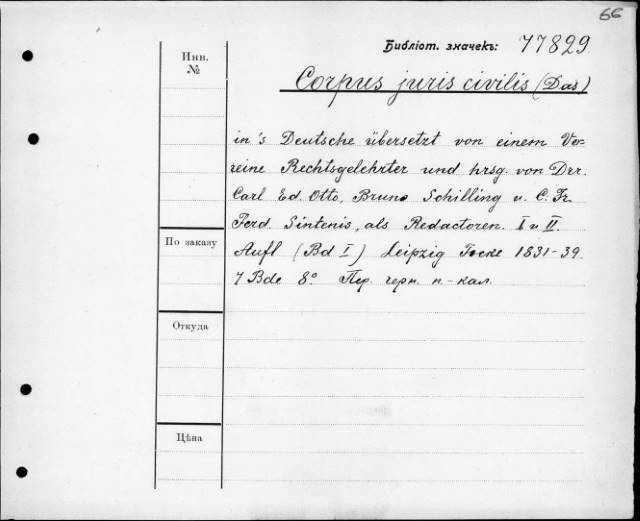 66
Библіот. значекъ: 77829.
Инв.
№
Corpus juris civilis (Das)
in's Deutsche übersetzt von einem Ve-
reine Rechtsgelehrter und hrsg. von Drr.
Carl Ed. Otto, Bruno Schilling u. C. Fr.
Ferd. Sintenis, als Redactoren. I u II.
По заказу
Aufl (Bd I) Leipzig Focke 1831-39.
7 Bde 8° Пер. черн. п-кал.
Откуда
Цѣна